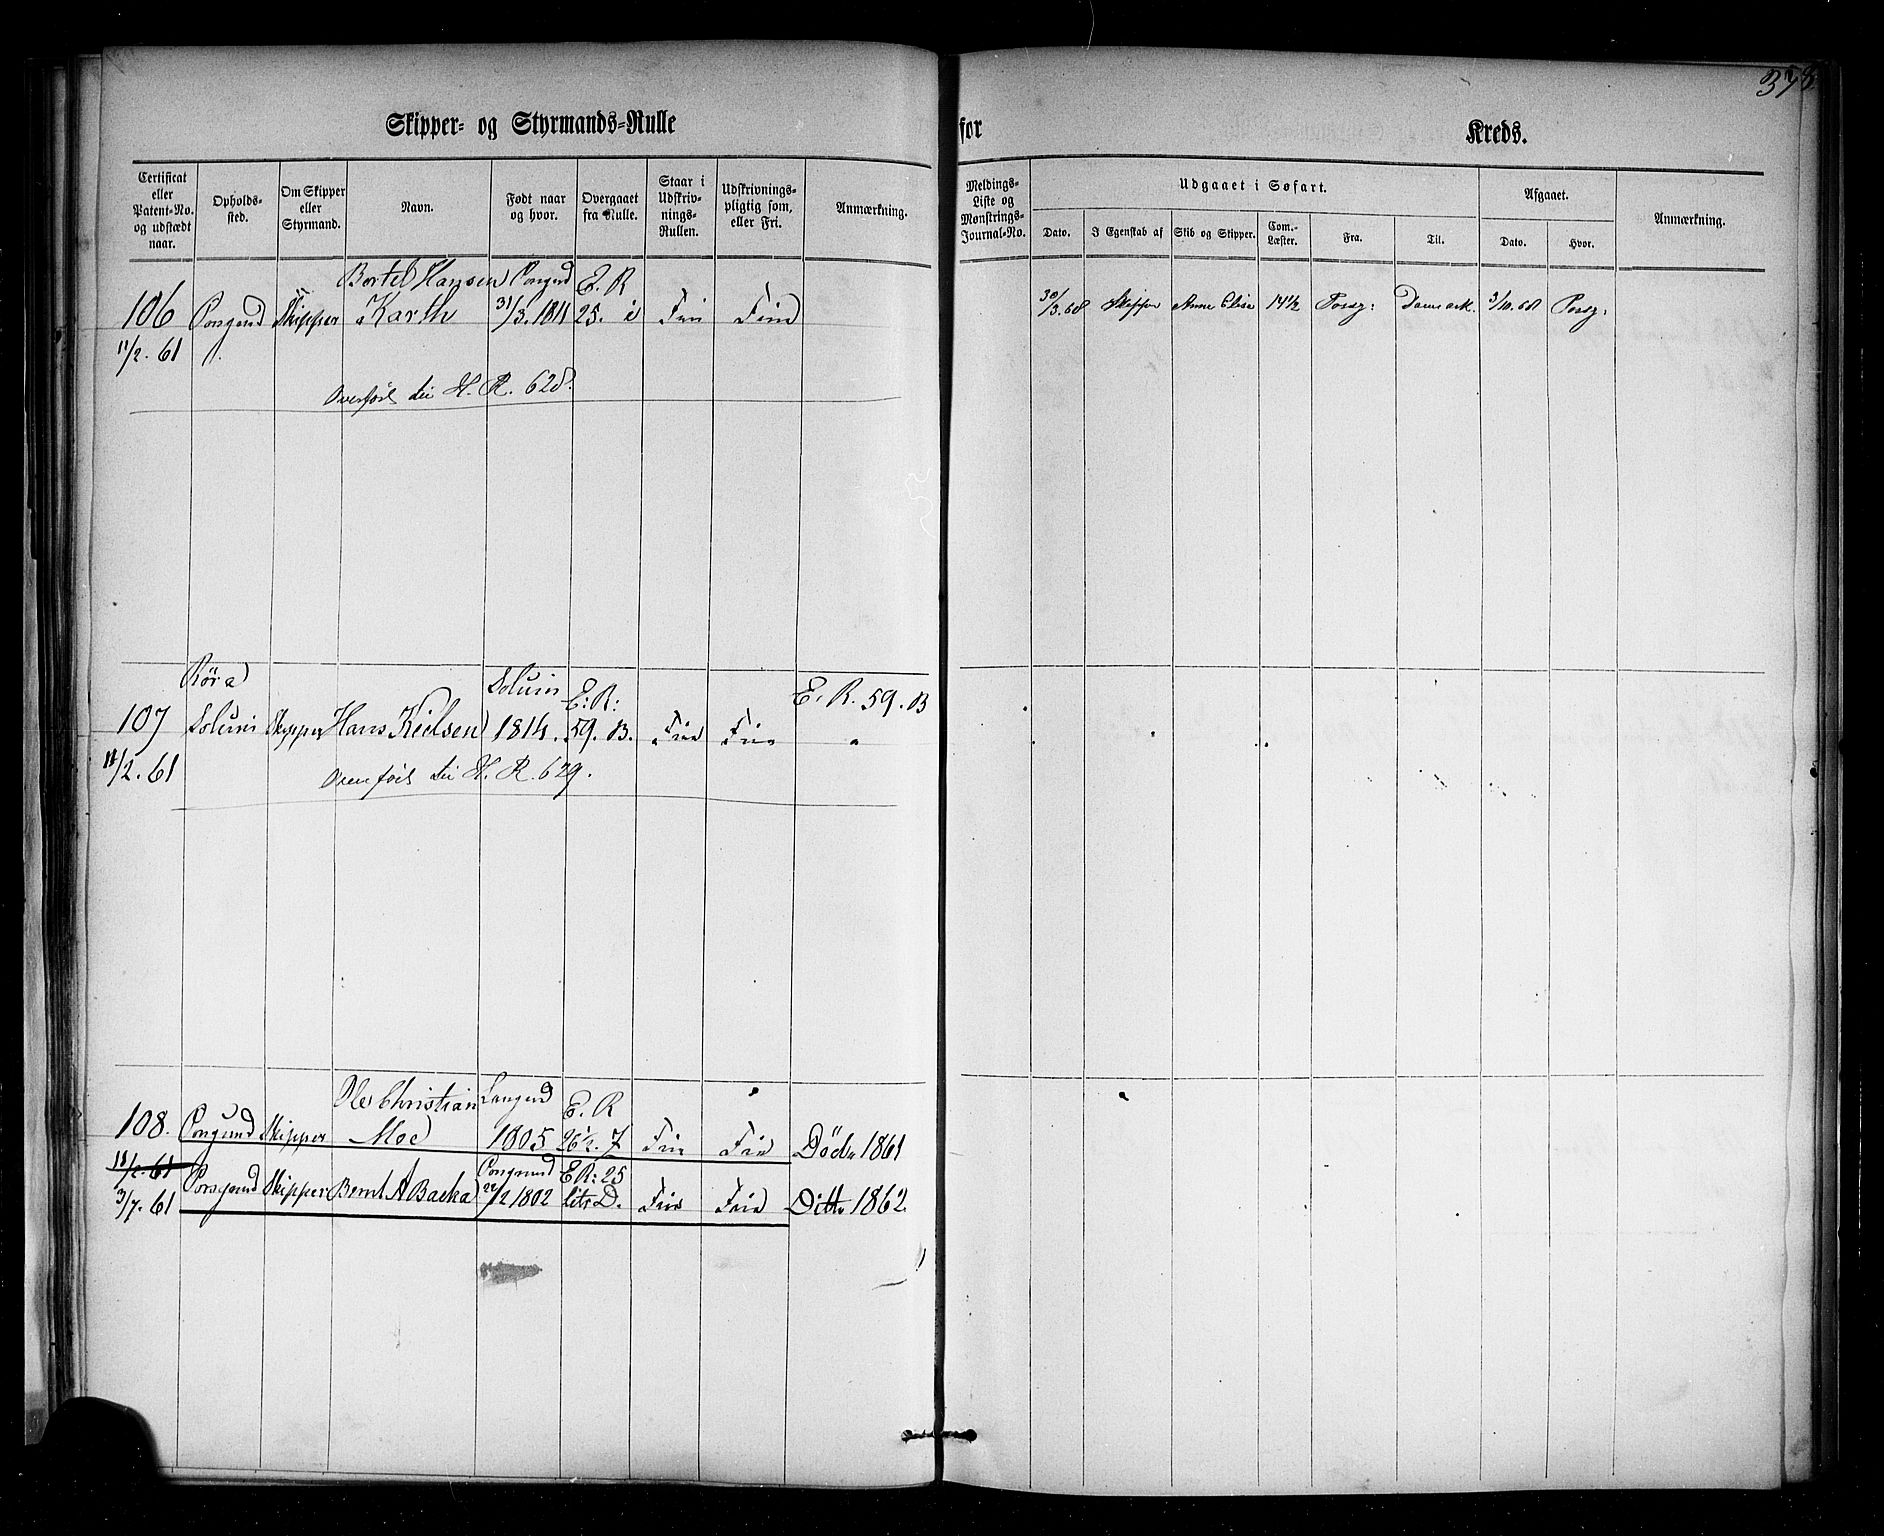 378
Skipper- og Styrmands-Rulle
for
Kreds.
Certificat eller Patent-No. og udstædt naar.
Opholds-sted.
Om Skipper eller Styrmand.
Navn.
Født naar og hvor.
Overgaaet fra Rulle.
Staar i Udskriv-nings-Rullen.
Udskrivnings-pligtig som, eller Fri.
Anmærkning.
Meldings-Liste og Mønstrings-Journal-No.
Udgaaet i Søfart.
Dato.
I Egenskab af
Skib og Skipper.
Com.-Læster.
Fra.
Til.
Afgaaet.
Dato.
Hvor.
Anmærkning.
Bertel Hansen Porsgrund E. R
106 Porsgrund Skipper Karth 31/3. 1811 25. i Frie Frie 30/3.68 Skipper Anne Elise 14 1/2 Porsg: Danmark. 3/10.68 Porsg:
11/2. 61
Overført til H. R. 628.
Röra Solum E: R: E. R. 59. B
107 Solum Skipper Hans Kielsen 1814. 59. B. Frie Frie
11/2. 61 Overført til H. R. 629.
Ole Christian Langesund E. R
108. Porsgrund Skipper Moe 1805 26 1/2. 7 Frie Frie Döde 1861
11/2. 61
Porsgrund Skipper Bernt A Backa Porsgrund E R: 25
3/7. 61 22/2 1802 litr D. Frie Frie Ditto 1862.